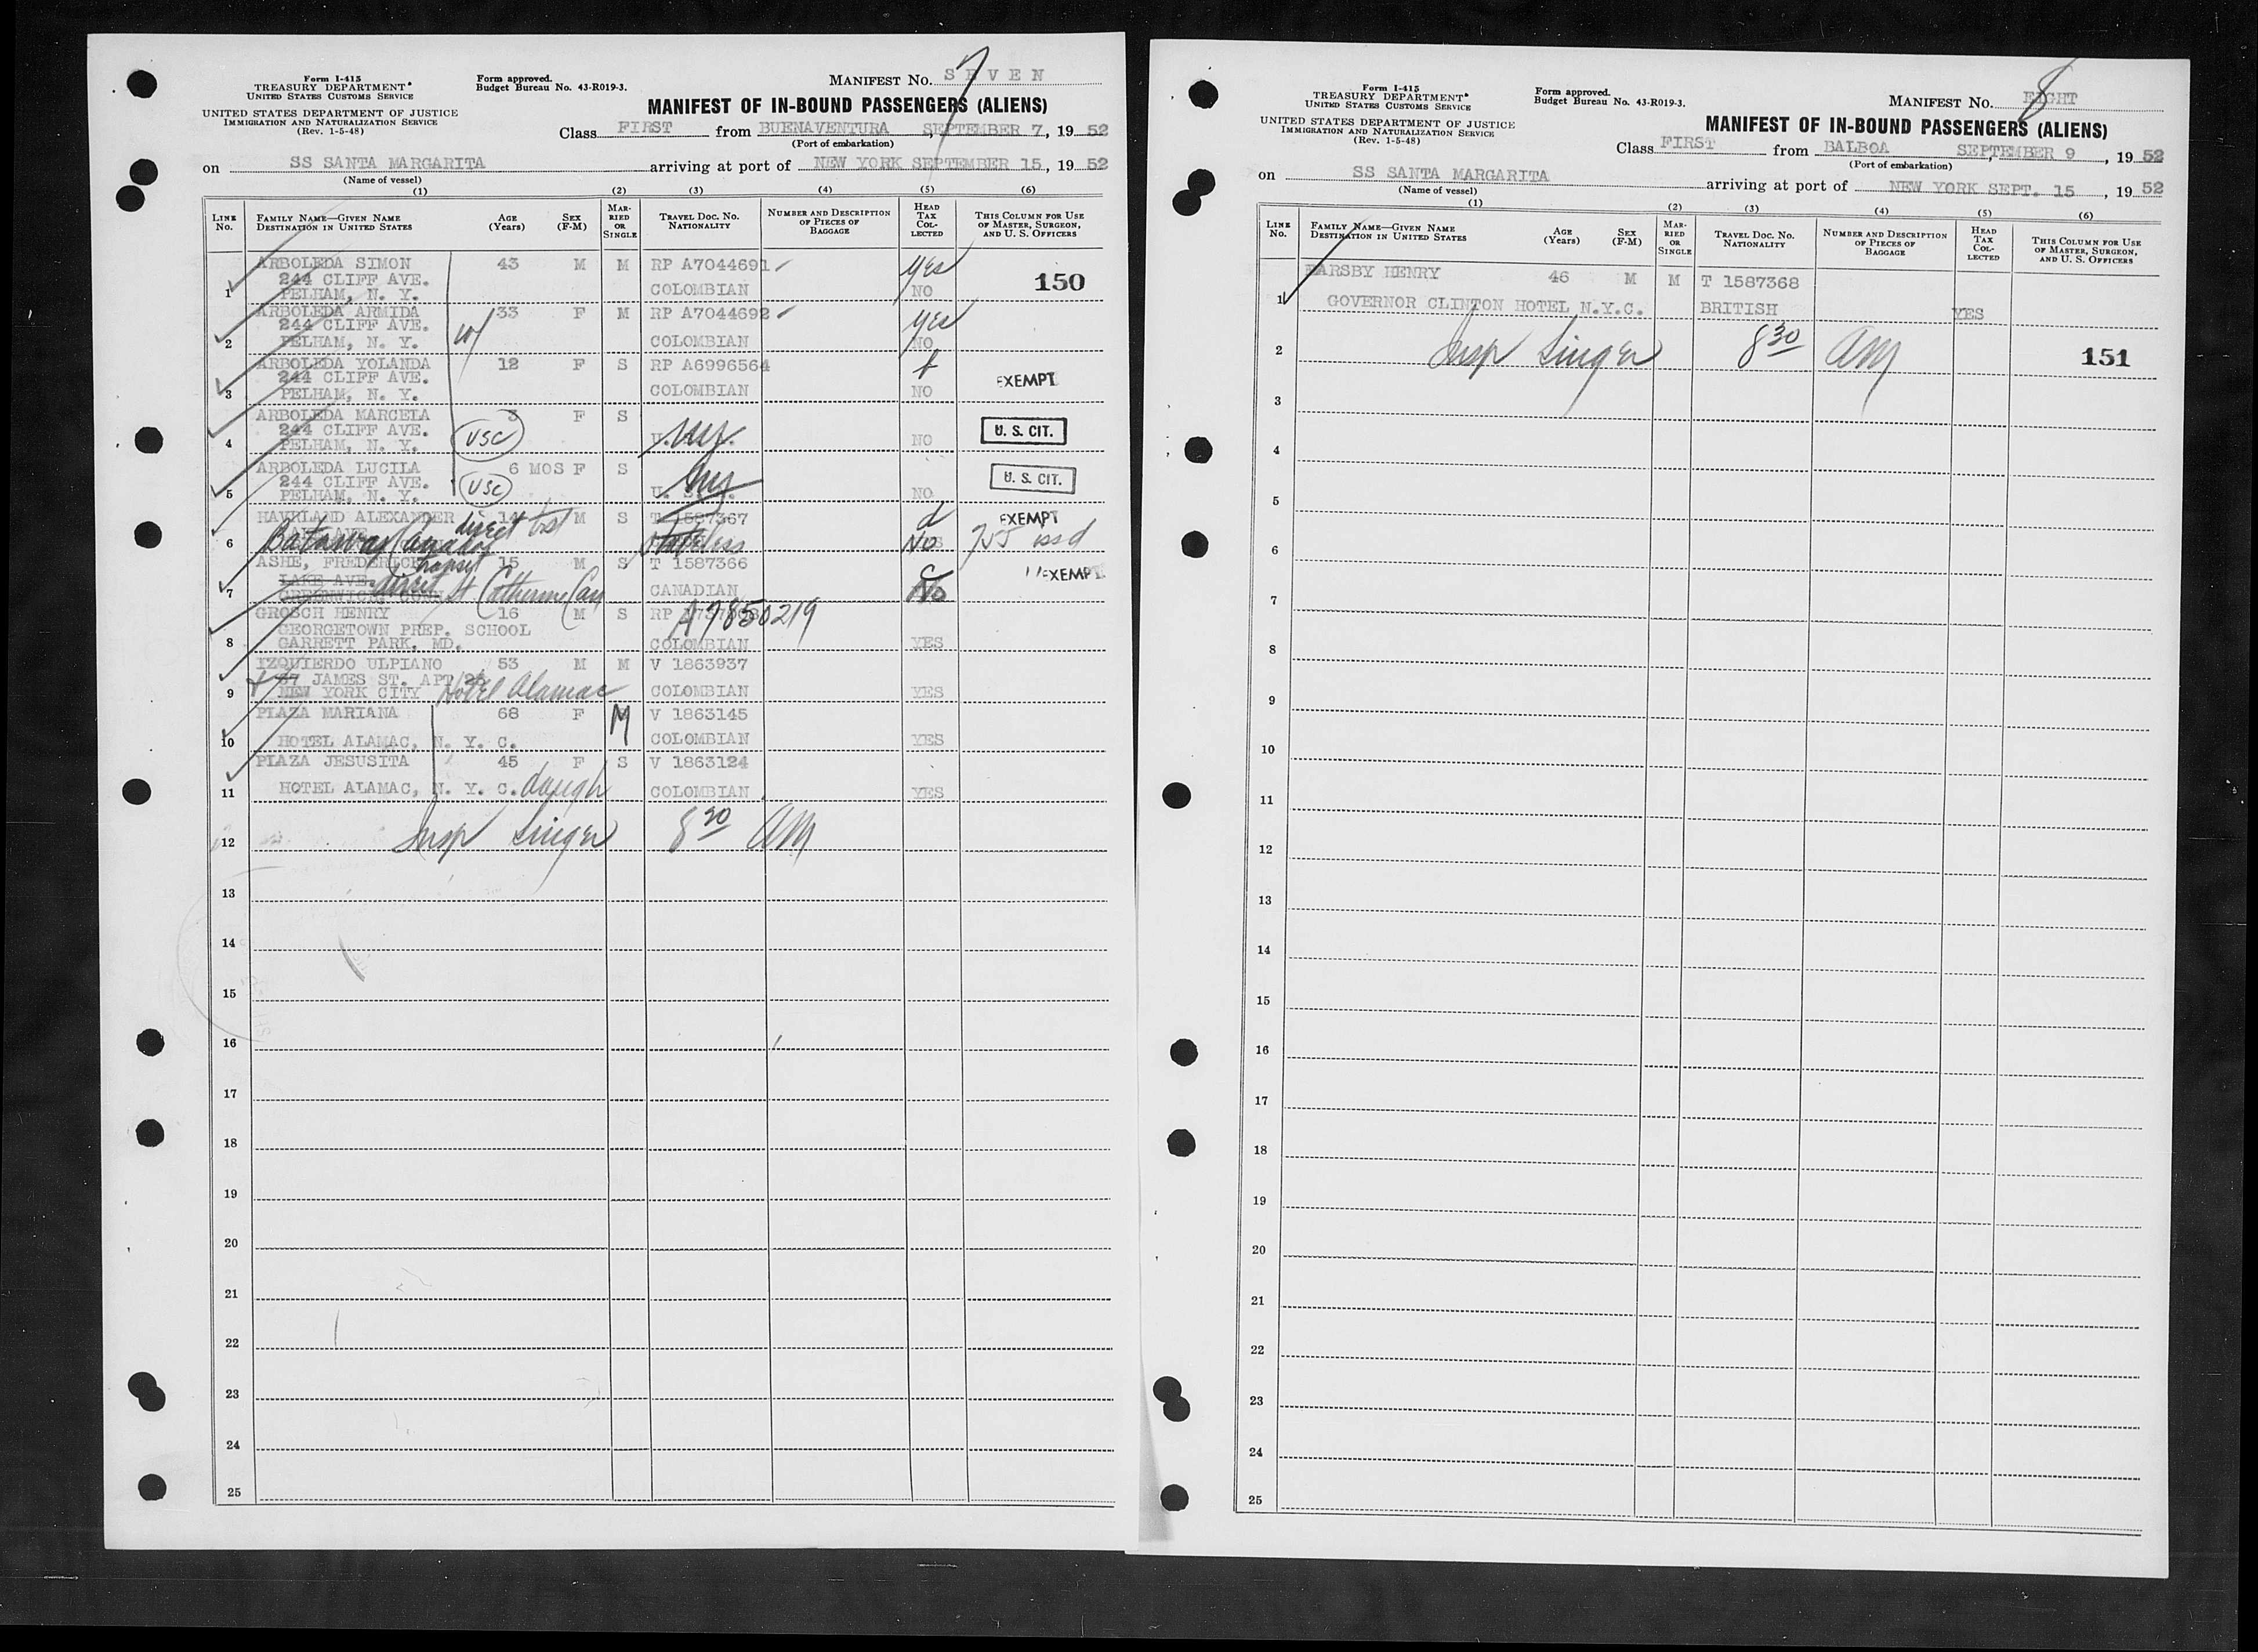 Form I-415
TREASURY DEPARTMENT
UNITED STATES CUSTOMS SERVICE
UNITED STATES DEPARTMENT OF JUSTICE
IMMIGRATION AND NATURALIZATION SERVICE
(Rev. 1-5-48)
Form approved.
Budget Bureau No. 43-R019-3.
MANIFEST NO. SEVEN 7
MANIFEST OF IN-BOUND PASSENGERS (ALIENS)
Class FIRST from BUENAVENTURA, SEPTEMBER 7, 19 52
(Port of embarkation)
on SS SANTA MARGARITA arriving at port of NEW YORK SEPTEMBER 15, 19 52
(Name of vessel)
(1) (2) (3) (4) (5) (6)
LINE NO. FAMILY NAME—GIVEN NAME DESTINATION IN UNITED STATES AGE (Years) SEX (F-M) MARRIED OR SINGLE TRAVEL DOC. NO. NATIONALITY NUMBER AND DESCRIPTION OF PIECES OF BAGGAGE HEAD TAX COLLECTED THIS COLUMN FOR USE OF MASTER, SURGEON, AND U. S. OFFICERS
ARBOLEDA SIMON 43 M M RP A7044691 yes
244 CLIFF AVE. 150
1 PELHAM, N. Y. COLOMBIAN NO
ARBOLEDA ARMIDA 33 F M RP A7044692 yes
244 CLIFF AVE.
2 PELHAM, N. Y. COLOMBIAN NO
ARBOLEDA YOLANDA 12 F S RP A6996564
244 CLIFF AVE. EXEMPT
3 PELHAM, N. Y. COLOMBIAN NO
ARBOLEDA MARCELA 3 F S
244 CLIFF AVE. USC U. S. CIT.
4 PELHAM, N. Y. NO
ARBOLEDA LUCILA 6 MOS F S
244 CLIFF AVE. USC U. S. CIT.
5 PELHAM, N. Y. NO
HAVRLAND ALEXANDER 14 M S T 1587367 EXEMPT
direct
6 Canada Stateless No issd
ASHE, FREDERICK 15 M S T 1587366 EXEMPT
LAKE AVE. transit direct
7 GREENWICH, CONN St Catherine Can CANADIAN No
GROSCH HENRY 16 M S RP A7850219
GEORGETOWN PREP. SCHOOL
8 GARRETT PARK, MD. COLOMBIAN YES
IZQUIERDO ULPIANO 53 M M V 1863937
JAMES ST. APT
9 NEW YORK CITY Hotel Alamac COLOMBIAN YES
PLAZA MARIANA 68 F M V 1863145
10 HOTEL ALAMAC, N. Y. C. COLOMBIAN YES
PLAZA JESUSITA 45 F S V 1863124
11 HOTEL ALAMAC, N. Y. C. daugh COLOMBIAN YES
12 Insp Singer 8 30 AM
13
14
15
16
17
18
19
20
21
22
23
24
25
Form I-415
TREASURY DEPARTMENT
UNITED STATES CUSTOMS SERVICE
UNITED STATES DEPARTMENT OF JUSTICE
IMMIGRATION AND NATURALIZATION SERVICE
(Rev. 1-5-48)
Form approved.
Budget Bureau No. 43-R019-3.
MANIFEST NO. EIGHT 8
MANIFEST OF IN-BOUND PASSENGERS (ALIENS)
Class FIRST from BALBOA, SEPTEMBER 9, 19 52
(Port of embarkation)
on SS SANTA MARGARITA arriving at port of NEW YORK SEPT. 15, 19 52
(Name of vessel)
(1) (2) (3) (4) (5) (6)
LINE NO. FAMILY NAME—GIVEN NAME DESTINATION IN UNITED STATES AGE (Years) SEX (F-M) MARRIED OR SINGLE TRAVEL DOC. NO. NATIONALITY NUMBER AND DESCRIPTION OF PIECES OF BAGGAGE HEAD TAX COLLECTED THIS COLUMN FOR USE OF MASTER, SURGEON, AND U. S. OFFICERS
HENRY 46 M M T 1587368
1 GOVERNOR CLINTON HOTEL N.Y.C. BRITISH YES
2 Insp Singer 8 30 AM 151
3
4
5
6
7
8
9
10
11
12
13
14
15
16
17
18
19
20
21
22
23
24
25